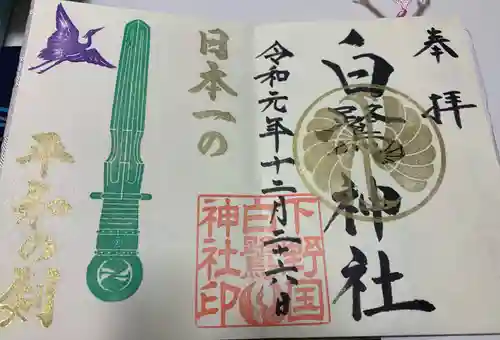 奉拝
白鷺神社
令和元年十二月二十六日
下野国
白鷺
神社印
日本一の
平和の剣